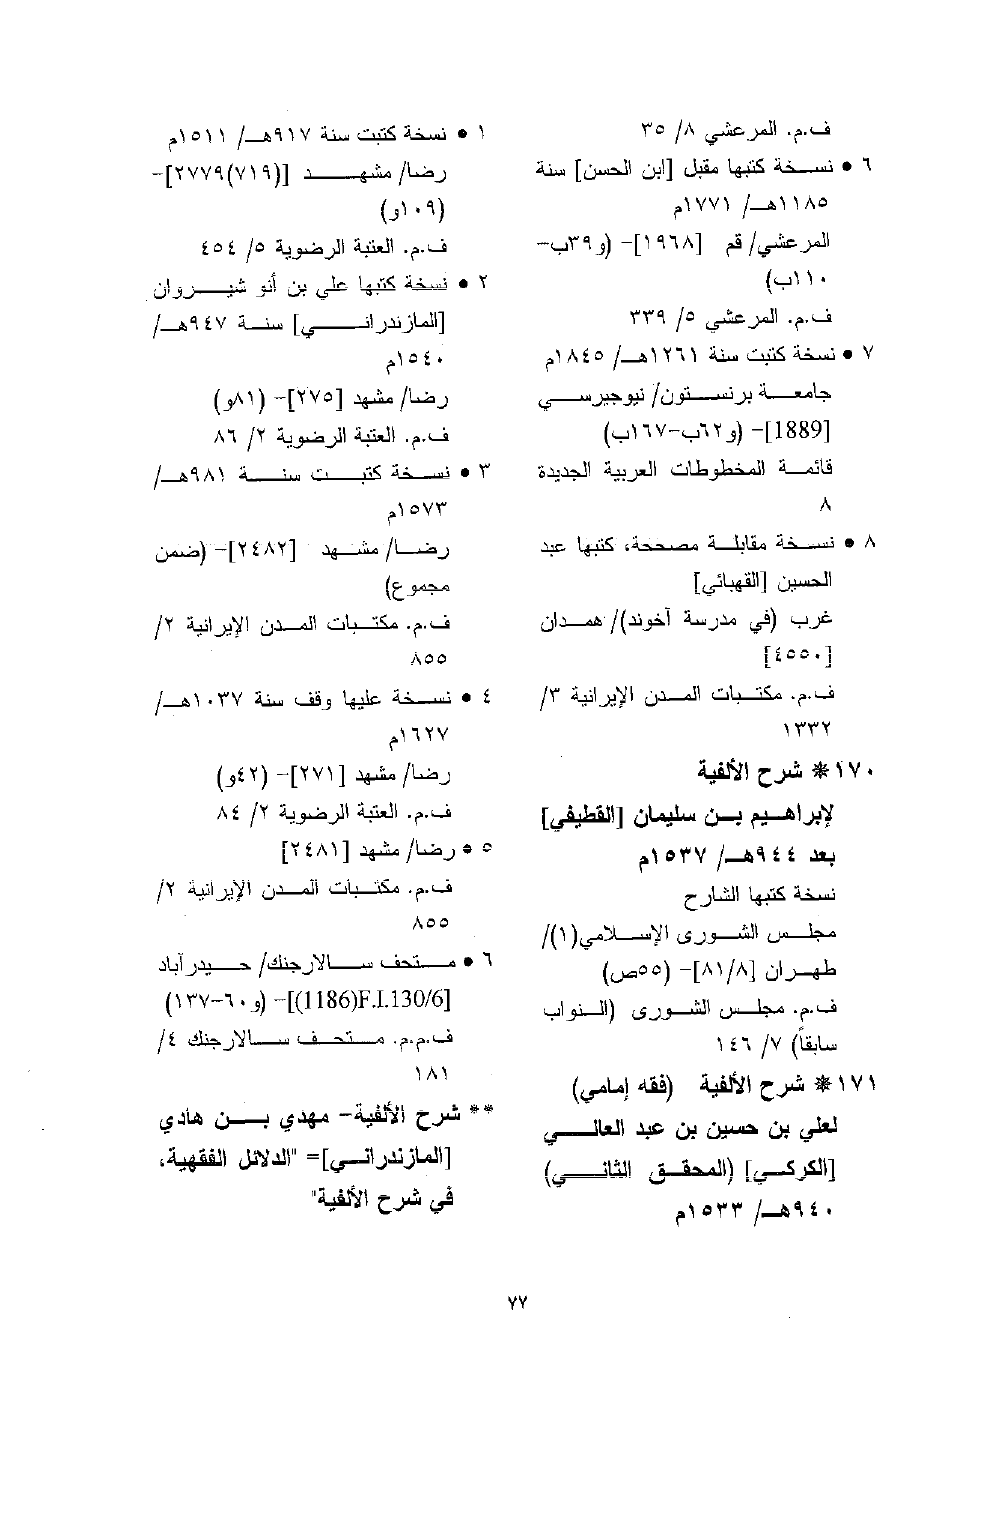 ف.م. المرعشي ٨/ ٣٥
٦ • نسخة كتبها مقبل [ابن الحسن] سنة
١١٨٥هـ/ ١٧٧١م
المرعشي/ قم [١٩٦٨]- (و٣٩ب-
١١٠ب)
ف.م. المرعشي ٥/ ٣٣٩
٧ • نسخة كتبت سنة ١٢٦١هـ/ ١٨٤٥م
جامعة برنستون/ نيوجيرسي
[1889]- (و٦٢ب-١٦٧ب)
قائمة المخطوطات العربية الجديدة
٨
٨ • نسخة مقابلة مصححة، كتبها عبد
الحسين [القهبائي]
غرب (في مدرسة آخوند)/ همدان
[٤٥٥٠]
ف.م. مكتبات المدن الإيرانية ٣/
١٣٣٢
١٧٠* شرح الألفية
لإبراهيم بن سليمان [القطيفي]
بعد ٩٤٤هـ/ ١٥٣٧م
نسخة كتبها الشارح
مجلس الشورى الإسلامي(١)/
طهران [٨١/٨]- (٥٥ص)
ف.م. مجلس الشورى (النواب
سابقاً) ٧/ ١٤٦
١٧١* شرح الألفية (فقه إمامي)
لعلي بن حسين بن عبد العالي
[الكركي] (المحقق الثاني)
٩٤٠هـ/ ١٥٣٣م
١ • نسخة كتبت سنة ٩١٧هـ/ ١٥١١م
رضا/ مشهد [(٧١٩)٢٧٧٩]-
(١٠٩و)
ف.م. العتبة الرضوية ٥/ ٤٥٤
٢ • نسخة كتبها علي بن أنو شيروان
[المازندراني] سنة ٩٤٧هـ/
١٥٤٠م
رضا/ مشهد [٢٧٥]- (٨١و)
ف.م. العتبة الرضوية ٢/ ٨٦
٣ • نسخة كتبت سنة ٩٨١هـ/
١٥٧٣م
رضا/ مشهد [٢٤٨٢]- (ضمن
مجموع)
ف.م. مكتبات المدن الإيرانية ٢/
٨٥٥
٤ • نسخة عليها وقف سنة ١٠٣٧هـ/
١٦٢٧م
رضا/ مشهد [٢٧١]- (٤٢و)
ف.م. العتبة الرضوية ٢/ ٨٤
٥ • رضا/ مشهد [٢٤٨١]
ف.م. مكتبات المدن الإيرانية ٢/
٨٥٥
٦ • متحف سالارجنك/ حيدرآباد
[F.I.130/6(1186)]- (و٦٠-١٣٧)
ف.م.م. متحف سالارجنك ٤/
١٨١
** شرح الألفية- مهدي بن هادي
[المازندراني]= "الدلائل الفقهية،
في شرح الألفية"
٧٧